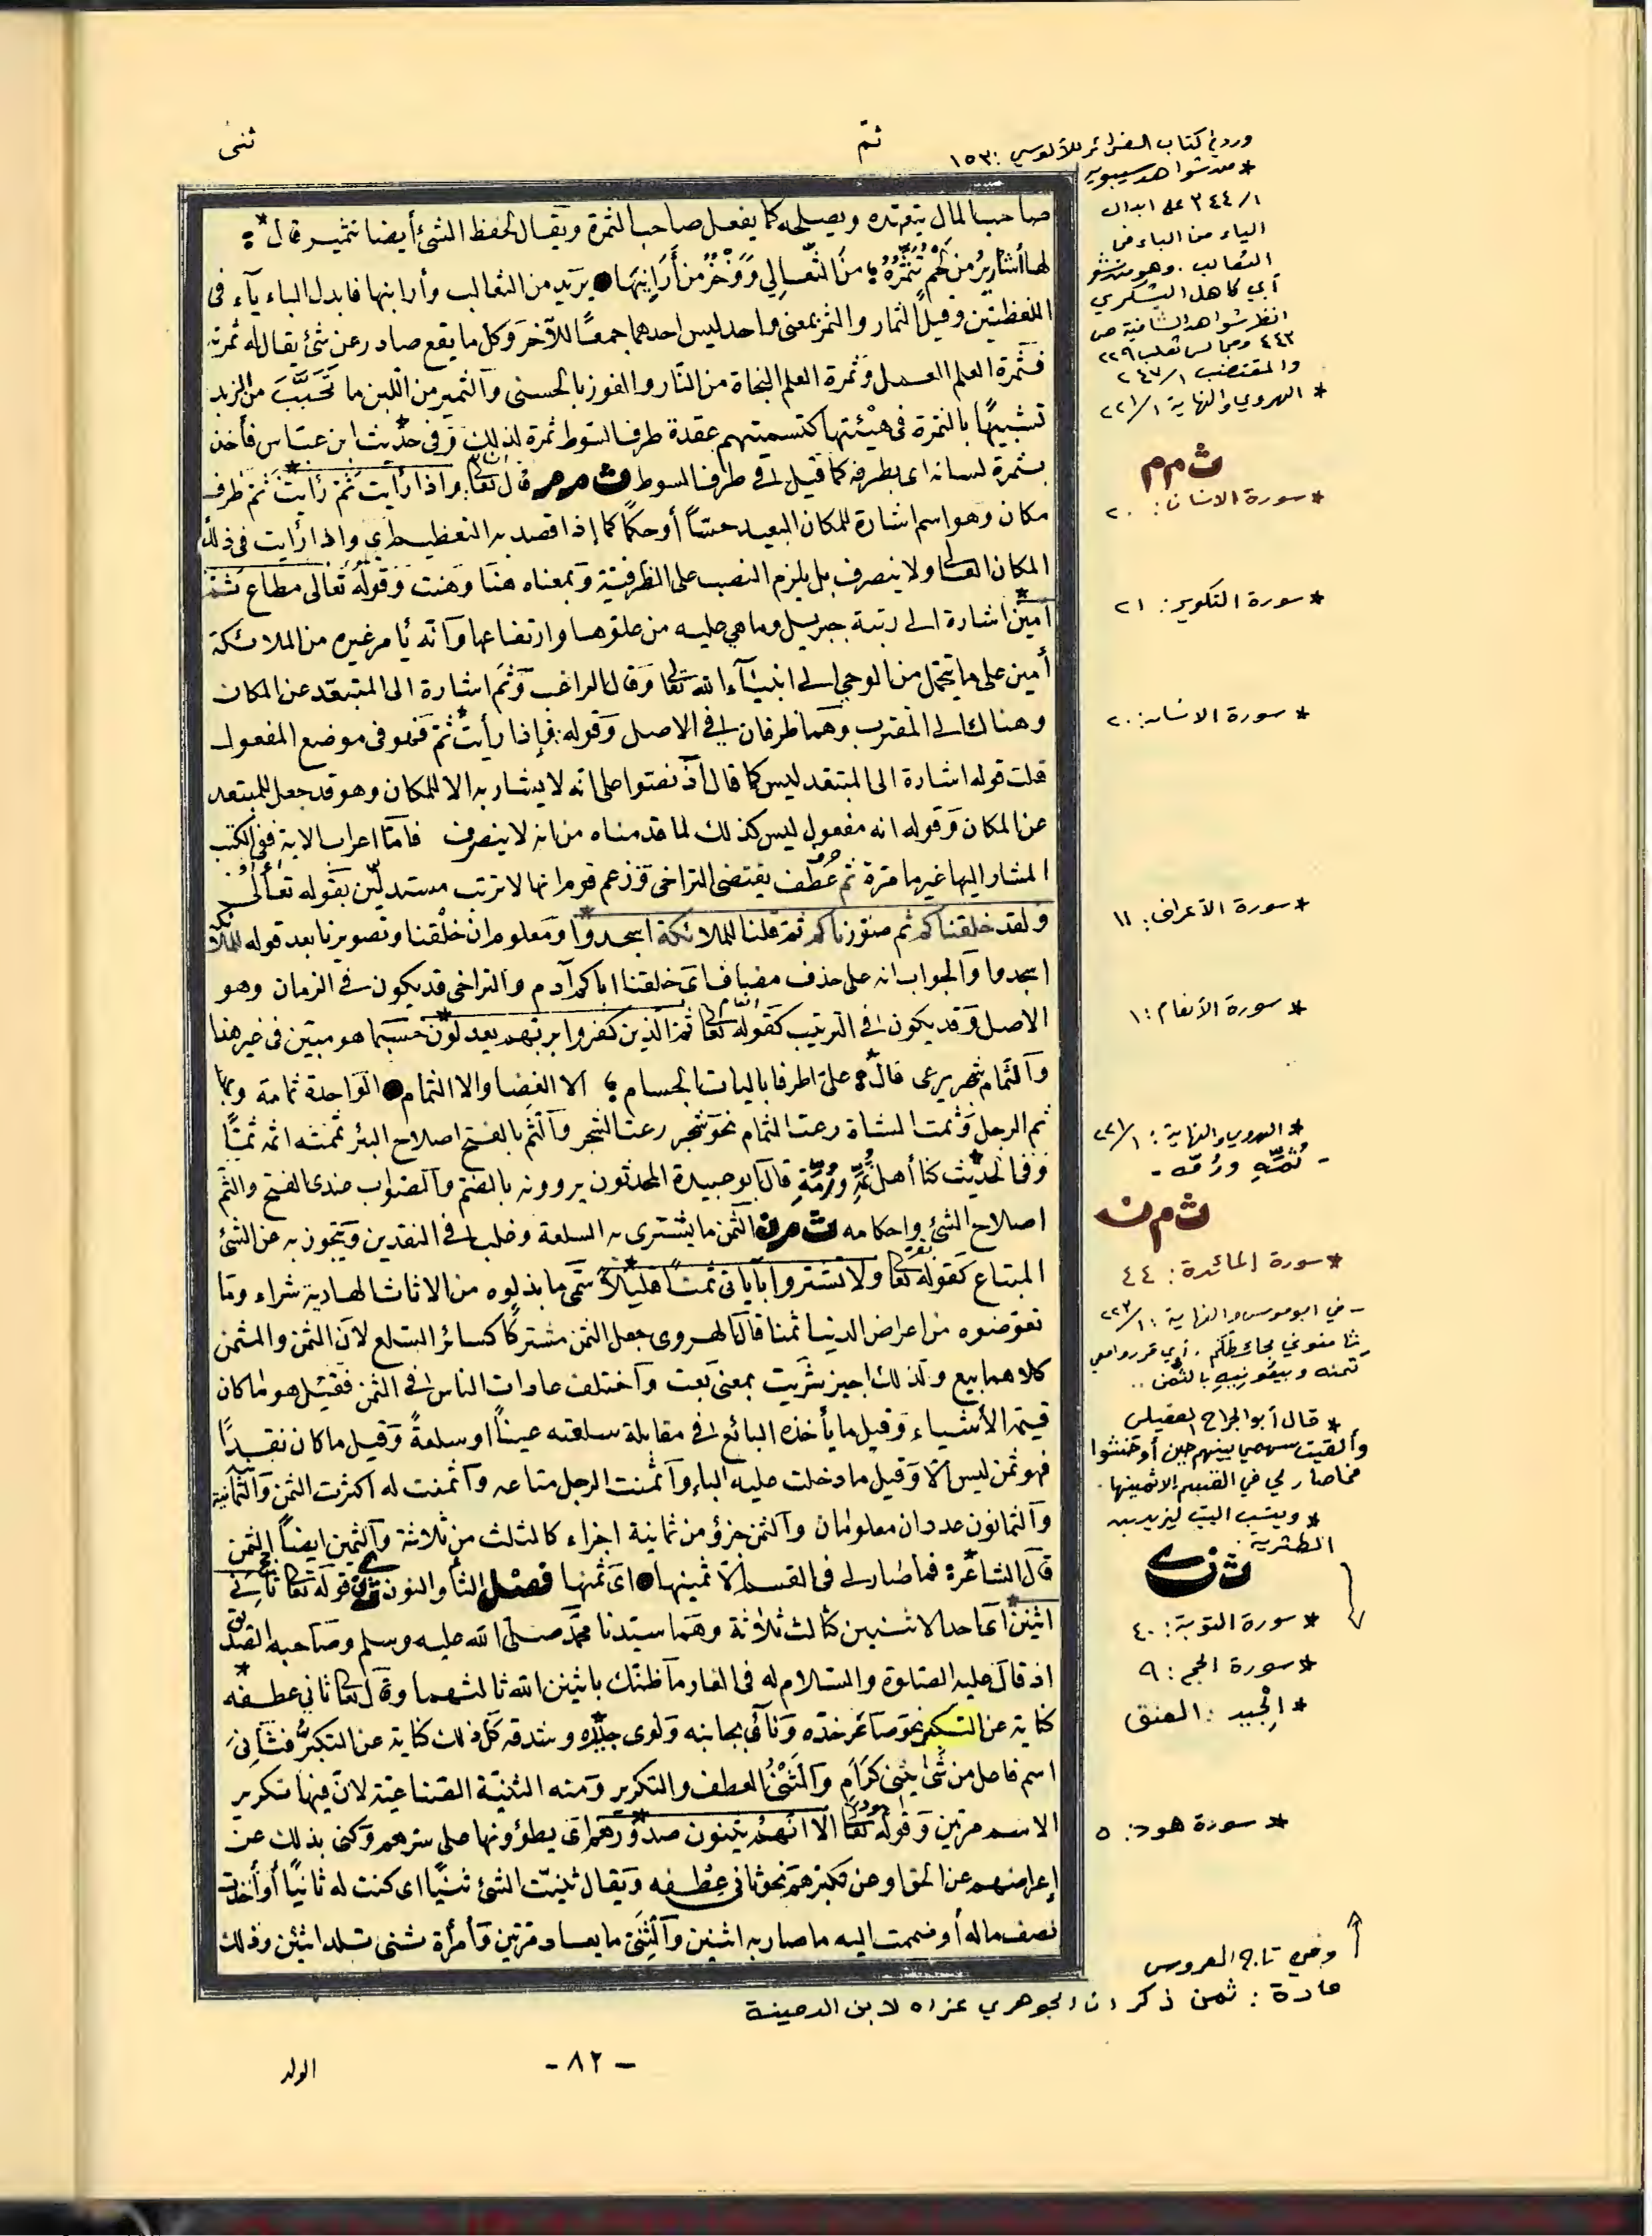 ثم
ثنى
صاحب المال يتعهده ويصلحه كما يفعل صاحب الثمرة ويقال لحفظ الشئ أيضا تثمير قال *
لها أشارير من لحم تُتَمِّرُهُ من الثَّعالي وَوَخْزٌ من أَرَانِيَها يريد من الثعالب وأرانبها فابدل الباء ياء فى
اللفظتين وقيل الثمار والثمر بمعنى واحد ليس احدهما جمعًا للآخر وكل ما يقع صادر عن شئ يقال له ثمرته
فثمرة العلم العمل وثمرة العلم النجاة من النار والفوز بالحسنى والثمير من اللبن ما تَحَبَّبَ من الزبد
تشبيهًا بالثمرة فى هيئتها كتسميتهم عقدة طرف السوط ثمرة لذلك وفى حديث ابن عباس فأخذ
بثمرة لسانه اى بطرفه كما قيل فى طرف السوط ث م م قال تعا واذا رأيت ثمّ رأيت ثم ظرف
مكان وهو اسم اشارة للمكان البعيد حسًّا أو حكمًا كما إذا قصد به التعظيم اى واذا رأيت فى ذلك
المكان العالى ولا ينصرف بل يلزم النصب على الظرفية وبمعناه هنّا وهنت وقوله تعالى مطاع ثَمَّ
أمين اشارة الى رتبة جبريل وما هى عليه من علوها وارتفاعها وانه يأمر غيره من الملائكة
أمين على ما يتحمل من الوحى الى انبيآء الله تعا وقال الراغب وثَم اشارة الى المتبعّد عن المكان
وهنالك الى المقترب وهما ظرفان فى الاصل وقوله فإذا رأيت ثمّ فهو فى موضع المفعول
قلت قوله اشارة الى المتبعد ليس كما قال اذ نصّوا على انه لا يشار به الا للمكان وهو قد جعل للمبتعد
عن المكان وقوله انه مفعول ليس كذلك لما قدمناه من انه لا ينصرف فاما اعراب الاية ففى الكتب
المشار اليها غير ما مرة ثم حرف عطف يقتضى التراخى وزعم قوم انها لا ترتب مستدلين بقوله تعالى
ولقد خلقناكم ثم صورناكم ثم قلنا للملائكة اسجدوا ومعلوم ان خلقنا وتصويرنا بعد قوله للملائكة
اسجدوا والجواب انه على حذف مضاف اى خلقنا اباكم آدم والتراخى قد يكون فى الزمان وهو
الاصل وقد يكون فى الترتيب كقوله تعا ثم الذين كفروا بربهم يعدلون حسبما هو مبيّن فى غير هذا
والثمام شجر يرعى قال * على اطرفا باليات الخيام الا الغضا والا الثمام الواحدة ثمامة وبها
ثم الرجل وثمت الشاة رعت الثمام نحو شجر رعت الشجر والثم بالفتح اصلاح البئر ثممته اثمه ثمًّا
وفى الحديث كنا أهل ثُمِّه ورُمِّه قال ابو عبيدة المحدثون يروونه بالضم والصواب عندى الفتح والثم
اصلاح الشئ واحكامه ث م ن الثمن ما يشترى به السلعة وغلب فى النقدين ويتجوز به عن الشئ
المبتاع كقوله تعا ولا تشتروا بآياتى ثمنًا قليلا سمّى ما بذلوه من الاثاث الهادية شراء وما
تعوضوه من اعراض الدنيا ثمنا قال الهروى جعل الثمن مشتركًا كسائر السلع لان الثمن والمثمن
كلاهما بيع ولذلك اجيز شريت بمعنى بعت واختلف عادات الناس فى الثمن فقيل هو لما كان
قيمة الأشياء وقيل ما يأخذه البائع فى مقابلة سلعته عينًا او سلعة وقيل ما كان نقدًا
فهو ثمن ليس الا وقيل ما دخلت عليه الباء واثمنت الرجل متاعه واثمنت له اكثرت الثمن والثمانية
والثمانون عددان معلومان والثمن جزؤ من ثمانية اجزاء كالثلث من ثلاثة والثمين ايضًا الثمن
قال الشاعر * فما صار لى فى القسم الا ثمينها اى ثمنها فصل الثاء والنون ث ن ى قوله تعا ثانى
اثنين اى احد الاثنين كثالث ثلاثة وهما سيدنا محمد صلى الله عليه وسلم وصاحبه الصديق
اذ قال عليه الصلوة والسلام له فى الغار ما ظنك باثنين الله ثالثهما وقال تعا ثانى عطفه
كناية عن التكبر نحو صاعر خده ونأى بجانبه ولوى جيده وشدقه كل ذلك كناية عن التكبر فثانى
اسم فاعل من ثنى يثنى كرَمى والثَّنْىُ العطف والتكرير ومنه التثنية الصناعية لان فيها تكرير
الاسم مرتين وقوله تعا الا انهم يثنون صدورهم اى يطؤونها على سترهم وكنى بذلك عن
إعراضهم عن الحق او عن تكبرهم نحو ثانى عطفه ويقال ثنيت الشئ ثنيًا اى كنت له ثانيًا أو أخذت
نصف ماله أو ضممت اليه ما صار به اثنين والثِّنَى ما يعاد مرتين وامرأة ثنى تلد اثنين وذلك
ورد في كتاب الضرائر للآلوسي: ١٥٣
* من شواهد سيبويه
١/ ٣٤٤ على ابدال
الياء من الباء في
الثعالب . وهو من شعر
أبي كاهل اليشكري
انظر شواهد الشافية ص
٤٤٣ ومجالس ثعلب ٢٢٩
والمقتضب ١/ ٢٤٧
* الهروي والنهاية ١/ ٢٢١
ث م م
* سورة الانسان: ٢٠
* سورة التكوير: ٢١
* سورة الانسان: ٢٠
* سورة الأعراف: ١١
* سورة الأنعام: ١
* الهروي والنهاية: ١/ ٢٢١
- ثُمِّهِ ورُمِّه -
ث م ن
* سورة المائدة: ٤٤
- في ابو موسى والنهاية: ١/ ٢٢٣
ثامنوني بحائطكم . أي قرروا معي
ثمنه وبيعُونِيهِ بالثمن ..
* قال أبو الجراح العقيلي
وألقيت سهمي بينهم حين أوخشوا
فما صار لي في القسم إلا ثمينها .
* وينسب البيت ليزيد بن
الطثرية .
ث ن ى
* سورة التوبة: ٤٠
* سورة الحج: ٩
* الجيد : العنق
* سورة هود: ٥
وفي تاج العروس
مادة : ثمن ذكر ان الجوهري عزاه لابن الدمينة
- ٨٢ -
الولد